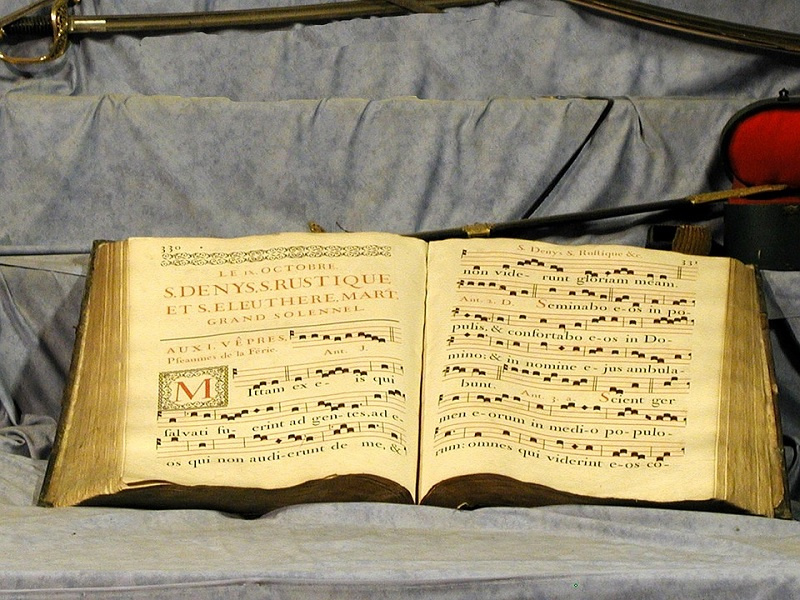 330
LE IX. OCTOBRE.
S. DENYS, S. RUSTIQUE
ET S. ELEUTHERE, MART.
GRAND SOLENNEL.
AUX I. VÊPRES.
Pseaumes de la Férie. Ant. 1.
MIttam ex e- is qui
salvati fu- erint ad gen-tes, ad e-
os qui non audi-erunt de me, &
S. Denys S. Rustique &c. 331
non vide- runt gloriam meam.
Ant. 2. D. Seminabo e-os in po-
pulis, & confortabo e-os in Do-
mino; & in nomine e- jus ambula-
bunt. Ant. 3. a. Scient ger
men e-orum in medi-o po-pulo-
rum: omnes qui viderint e-os co-